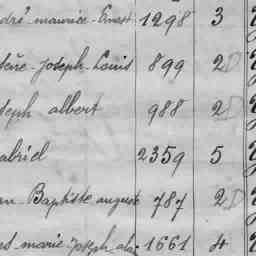 dré maurice Ernest 1298 3
Joseph Louis 899 2D
seph albert 988 2D
abriel 2359 5
an Baptiste auguste 787 2D
marie Joseph 1661 4